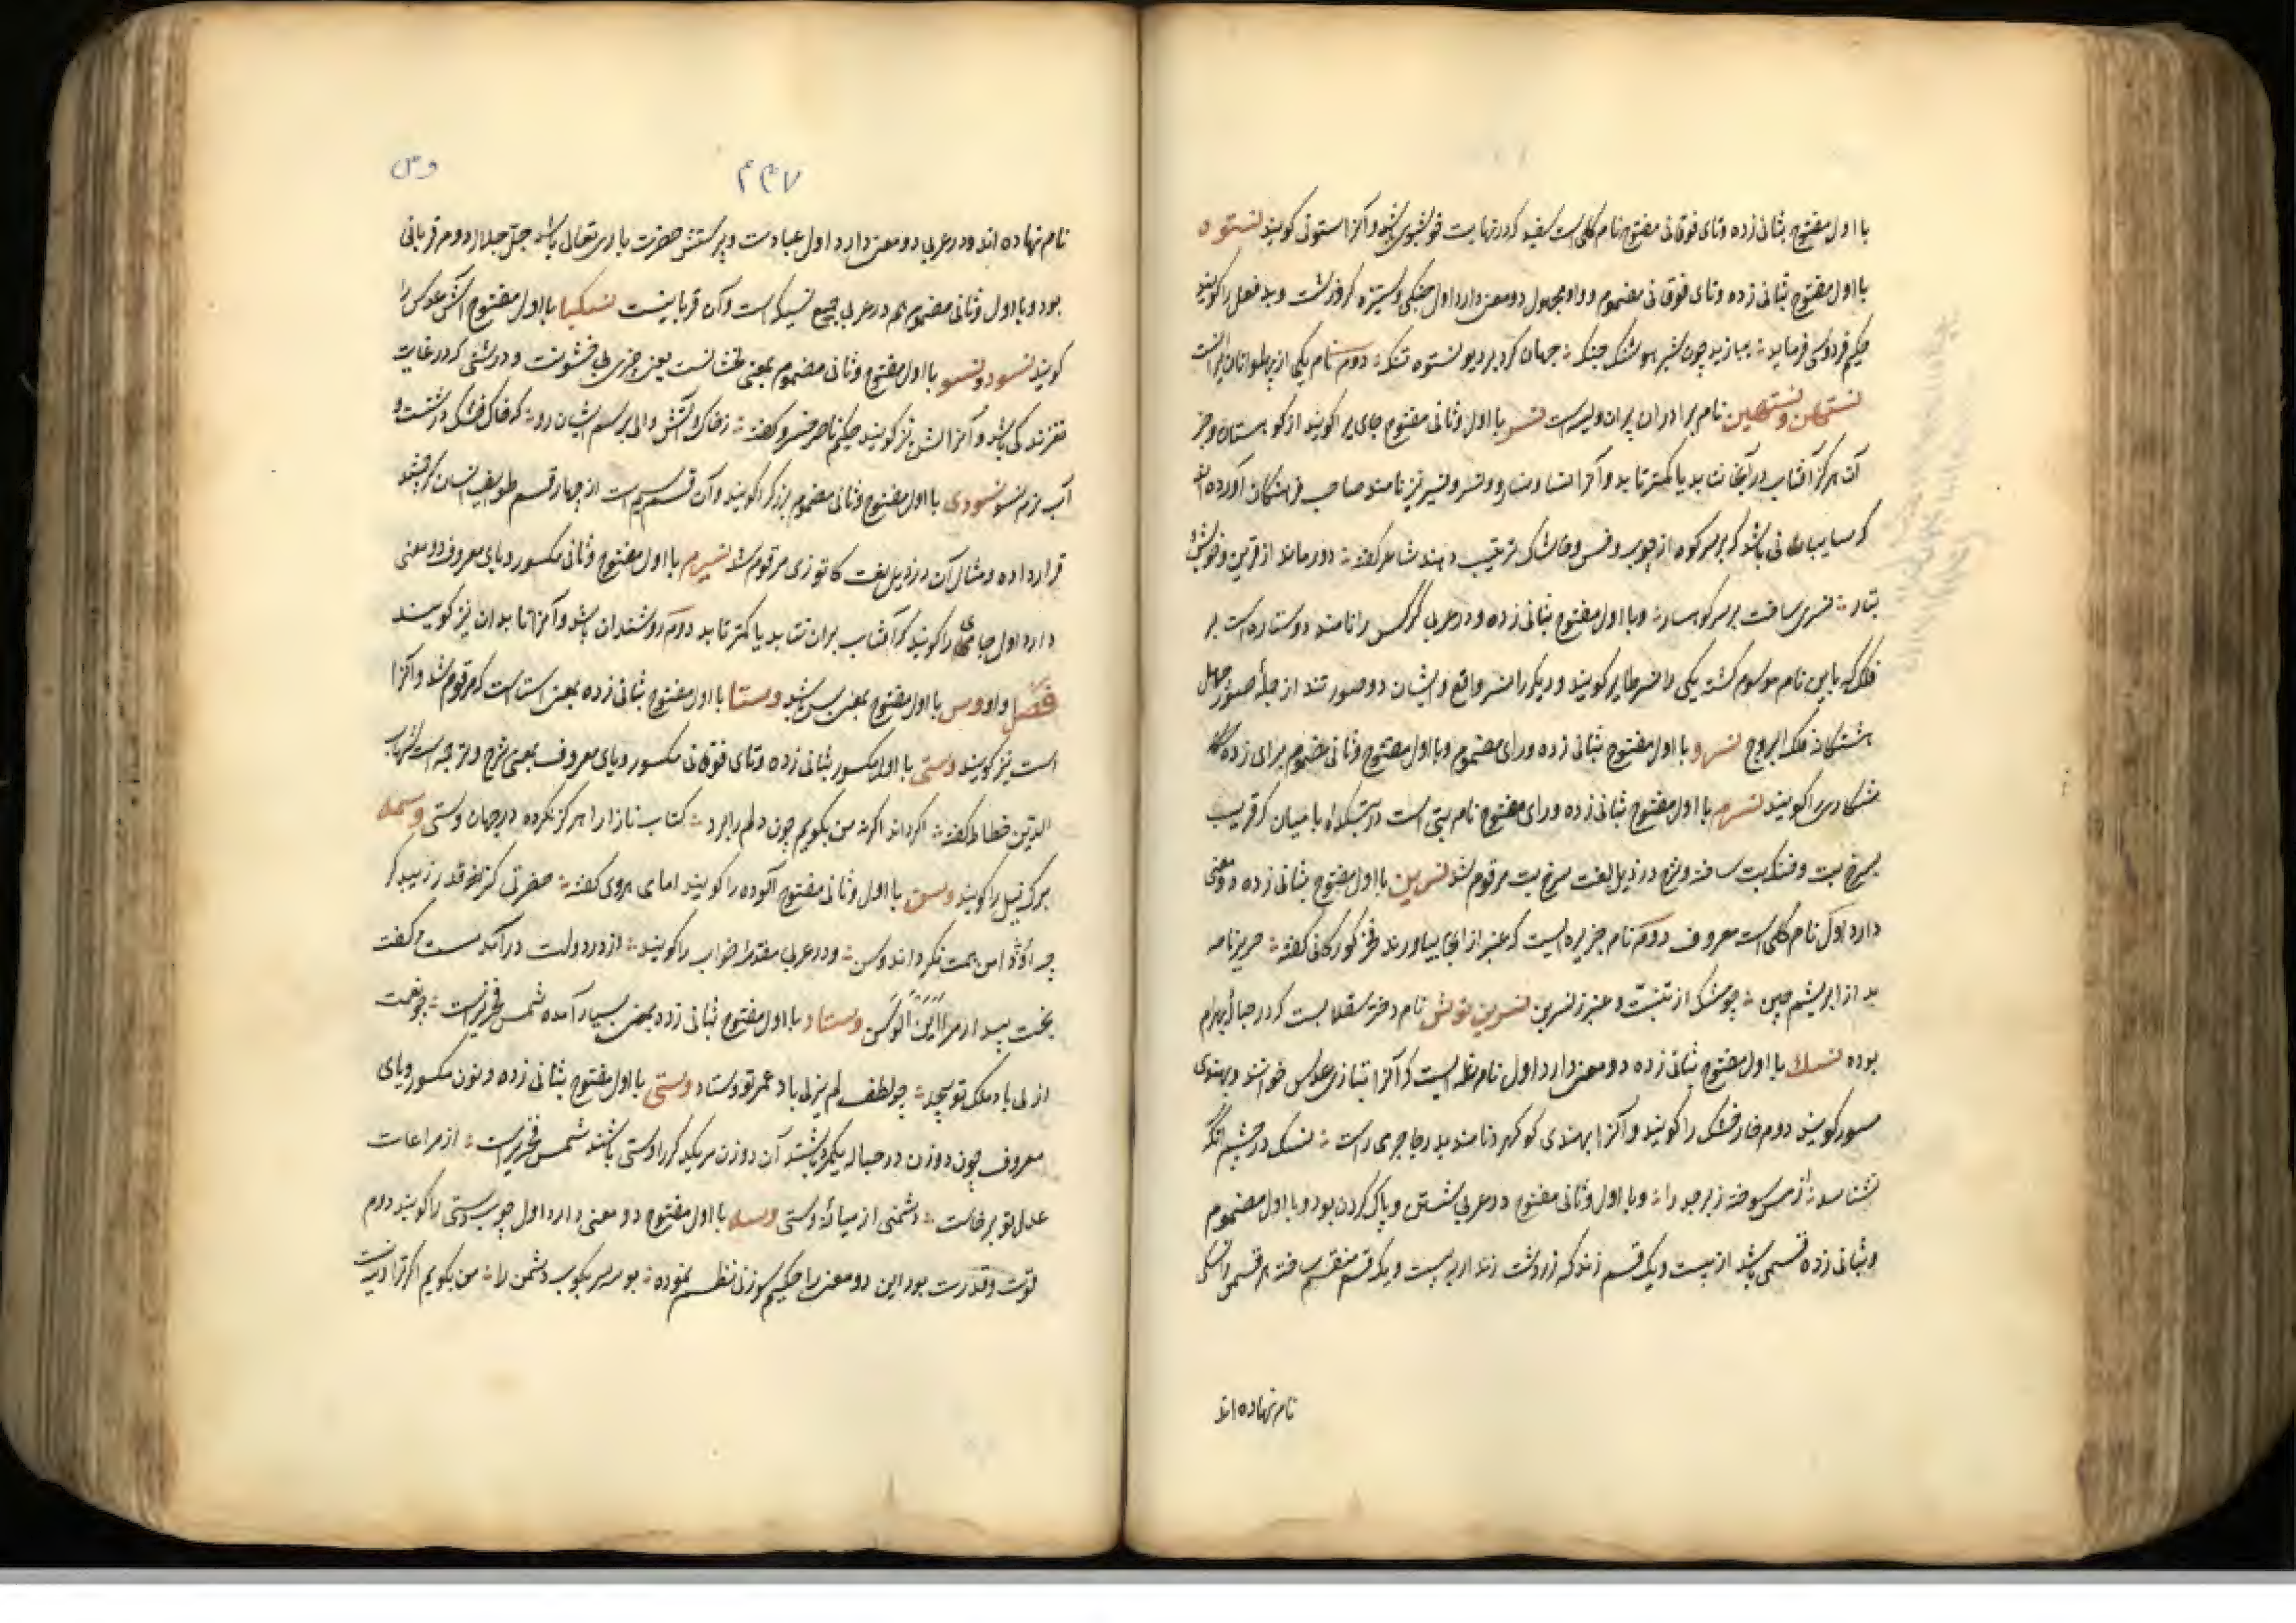 با اول مفتوح بثانی زده وتای فوقانی مفتوح نام کلی است سفید که در نهایت خوشبوی باشد و آنرا استونی کویند نستوه
با اول مفتوح بثانی زده وتای فوقانی مضموم وواو مجهول دو معنی دارد اول جنکی وستیزه کر و زشت و بد فعل را کویند
حکیم فردوسی فرماید بیازید چون شیر هوشنک چنک جهان کرد بر دیو نستوه تنک دوم نام یکی از پهلوانان ایرانست
نستهن ونستیهن نام برادران پیران ویسه است نسر با اول وثانی مفتوح جای را کویند از کوهستان وجز
آن که هرکز آفتاب در آنجا نتابد یا کمتر تابد و آنرا نسا ونسار ونسر ونسیر نیز نامند صاحب فرهنکان آورده اند
که سایبانی باشد که بر سر کوه از چوب وخس وخاشاک ترتیب دهند شاعر کفته دور ماند از قرین وخویش
تبار نسری ساخت بر سر کوهسار وبا اول مفتوح بثانی زده ودر عربی کرکس را نامند دو ستاره است بر
فلک که باین نام موسوم کشته یکی را نسر طایر کویند و دیکر را نسر واقع وایشان دو صورتند از جمله صور چهل
هشتکانه فلک البروج نسرو با اول مفتوح بثانی زده ورای مضموم وبا اول مفتوح وثانی مضموم برای زده
شکاری را کویند نسرم با اول مفتوح بثانی زده ورای مفتوح نام بتی است در بتکده بامیان که قریب
بسرخ بت وخنک بت ساخته وشرح در ذیل لغت سرخ بت مرقوم شد نسرین با اول مفتوح بثانی زده دو معنی
دارد اول نام کلی است معروف دوم نام جزیره ایست که عنبر از انجا بیاورند فخر کورکانی کفته حریر نامه
بد از ابریشم چین چو مشک از تبت وعنبر ز نسرین نسرین نوش نام دختر سقلابست که در حباله بهرام
بوده نسک با اول مفتوح بثانی زده دو معنی دارد اول نام غله ایست که آنرا بتازی عدس خوانند و بهندی
مسور کویند دوم خار خشک را کویند و آنرا بهندی کوکهرو نامند بدر جاجرمی راست نسک در چشم آنکه
نشناسد از مس سوخته زبرجد را وبا اول وثانی مفتوح در عربی شستن و پاک کردن بود وبا اول مضموم
وبثانی زده قسمی باشد از بیست ویک قسم زند که زردشت زند را به بیست ویک قسم منقسم ساخته هر قسمی را نسکی
نام نهاده اند
۲۴۷
وس
نام نهاده اند ودر عربی دو معنی دارد اول عبادت و پرستش حضرت باری تعالی باشد جل جلاله دوم قربانی
بود وبا اول وثانی مضموم هم در عربی جمع نسیکه است و آن قربانیست نسکبا با اول مفتوح آش عدس را
کویند نسود ونسو با اول مفتوح وثانی مضموم بمعنی لخشانست یعنی چیزی بی خشونت ودرشتی که در غایت
لغزندکی باشد و آنرا لشن نیز کویند حکیم ناصر خسرو کفته ز خاک و آتش و آبی برسم ایشان رو که خاک خشک درشتست و
آب نرم نسو نسودی با اول مفتوح وثانی مضموم برزکر را کویند و آن قسم سیم است از چهار قسم طوایف انسان که جمشید
قرار داده ومثال آن در ذیل لغت کاتوزی مرقوم شد نسیرم با اول مفتوح وثانی مکسور ویای معروف دو معنی
دارد اول جای را کویند که آفتاب بران نتابد یا کمتر تابد دوم روشندان باشد و آنرا تابدان نیز کویند
فصل واو وس با اول مفتوح بمعنی بس باشد وستا با اول مفتوح بثانی زده بمعنی استا است که مرقوم شد و آنرا
است نیز کویند وستی با اول مکسور بثانی زده وتای فوقانی مکسور ویای معروف بمعنی شرح وترجمه است شهاب
الدین خطاط کفته اکر داند اکر نه من بکویم چون دلم را برد کتاب ناز را هرکز نکرده در جهان وستی وسمه
برک نیل را کویند وسن با اول وثانی مفتوح آلوده را کویند امامی هروی کفته
بهمت نکرداند وسن ودر عربی مقدمه خواب را کویند از در دولت در آمد مست وکفت
بخت بیدار مرا وستاد با اول مفتوح بثانی زده بمعنی بسیار آمده شمس فخریراست چو نعمت
ازلی باد ملک تو بیحد چو لطف لم یزلی باد عمر تو وستاد وسنی با اول مفتوح بثانی زده ونون مکسور ویای
معروف چون دو زن در حباله یکمرد باشند آن دو زن مر یکدیکر را وسنی باشند شمس فخریراست از مراعات
عدل تو برخاست دشمنی از میانه وسنی وسه با اول مفتوح دو معنی دارد اول چوب دستی را کویند دوم
قوت وقدرت بود این دو معنی را حکیم سوزنی نظم نموده بوسه سر بکوب دشمن را من بکویم اکر ترا وسه نیست